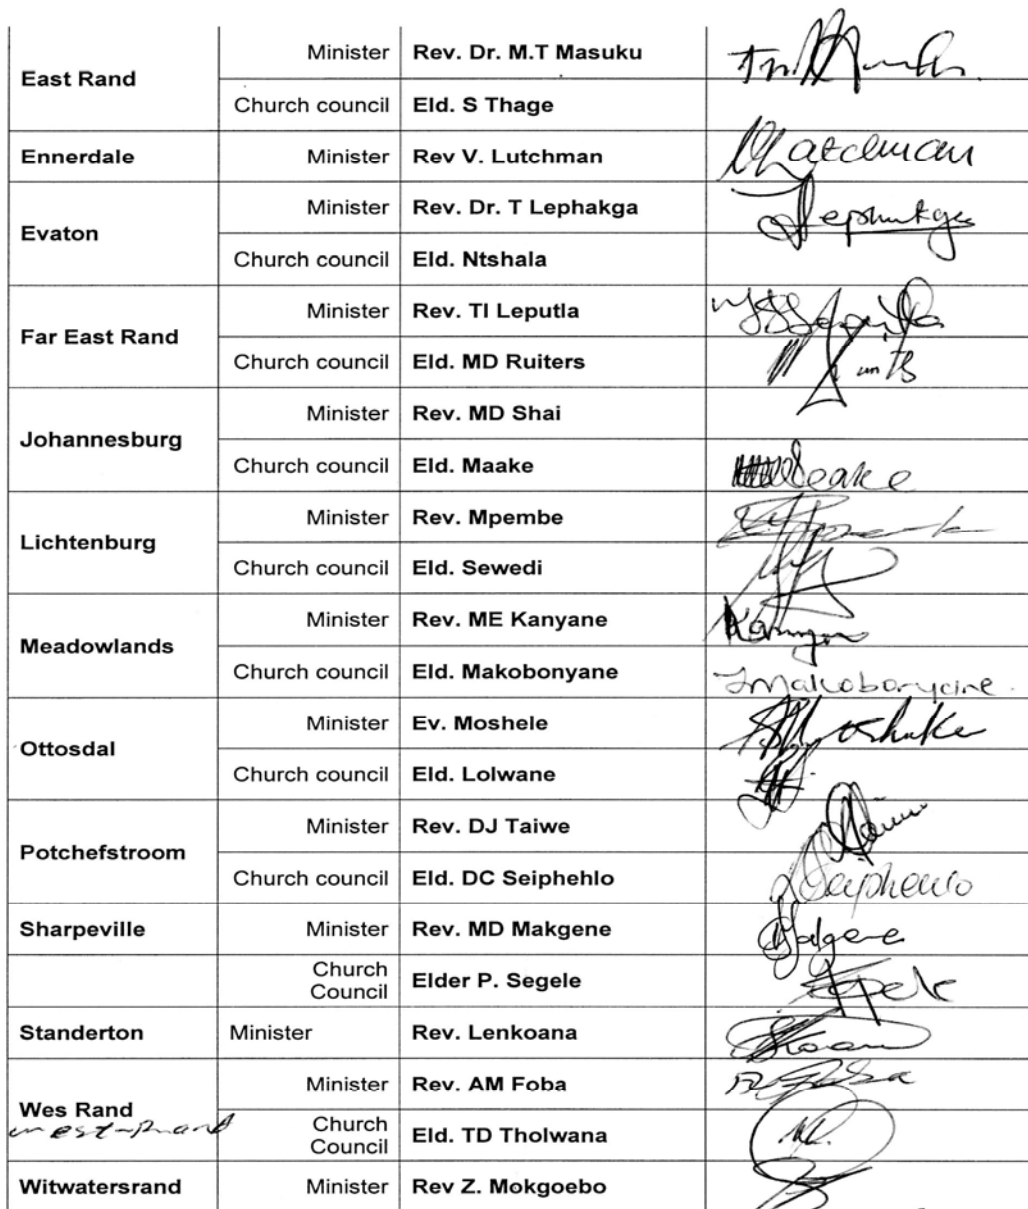 East Rand Minister Rev. Dr. M.T Masuku
Church council Eld. S Thage
Ennerdale Minister Rev V. Lutchman
Evaton Minister Rev. Dr. T Lephakga
Church council Eld. Ntshala
Far East Rand Minister Rev. TI Leputla
Church council Eld. MD Ruiters
Johannesburg Minister Rev. MD Shai
Church council Eld. Maake
Lichtenburg Minister Rev. Mpembe
Church council Eld. Sewedi
Meadowlands Minister Rev. ME Kanyane
Church council Eld. Makobonyane
Ottosdal Minister Ev. Moshele
Church council Eld. Lolwane
Potchefstroom Minister Rev. DJ Taiwe
Church council Eld. DC Seiphehlo
Sharpeville Minister Rev. MD Makgene
Church Council Elder P. Segele
Standerton Minister Rev. Lenkoana
Wes Rand Minister Rev. AM Foba
west-Rand Church Council Eld. TD Tholwana
Witwatersrand Minister Rev Z. Mokgoebo